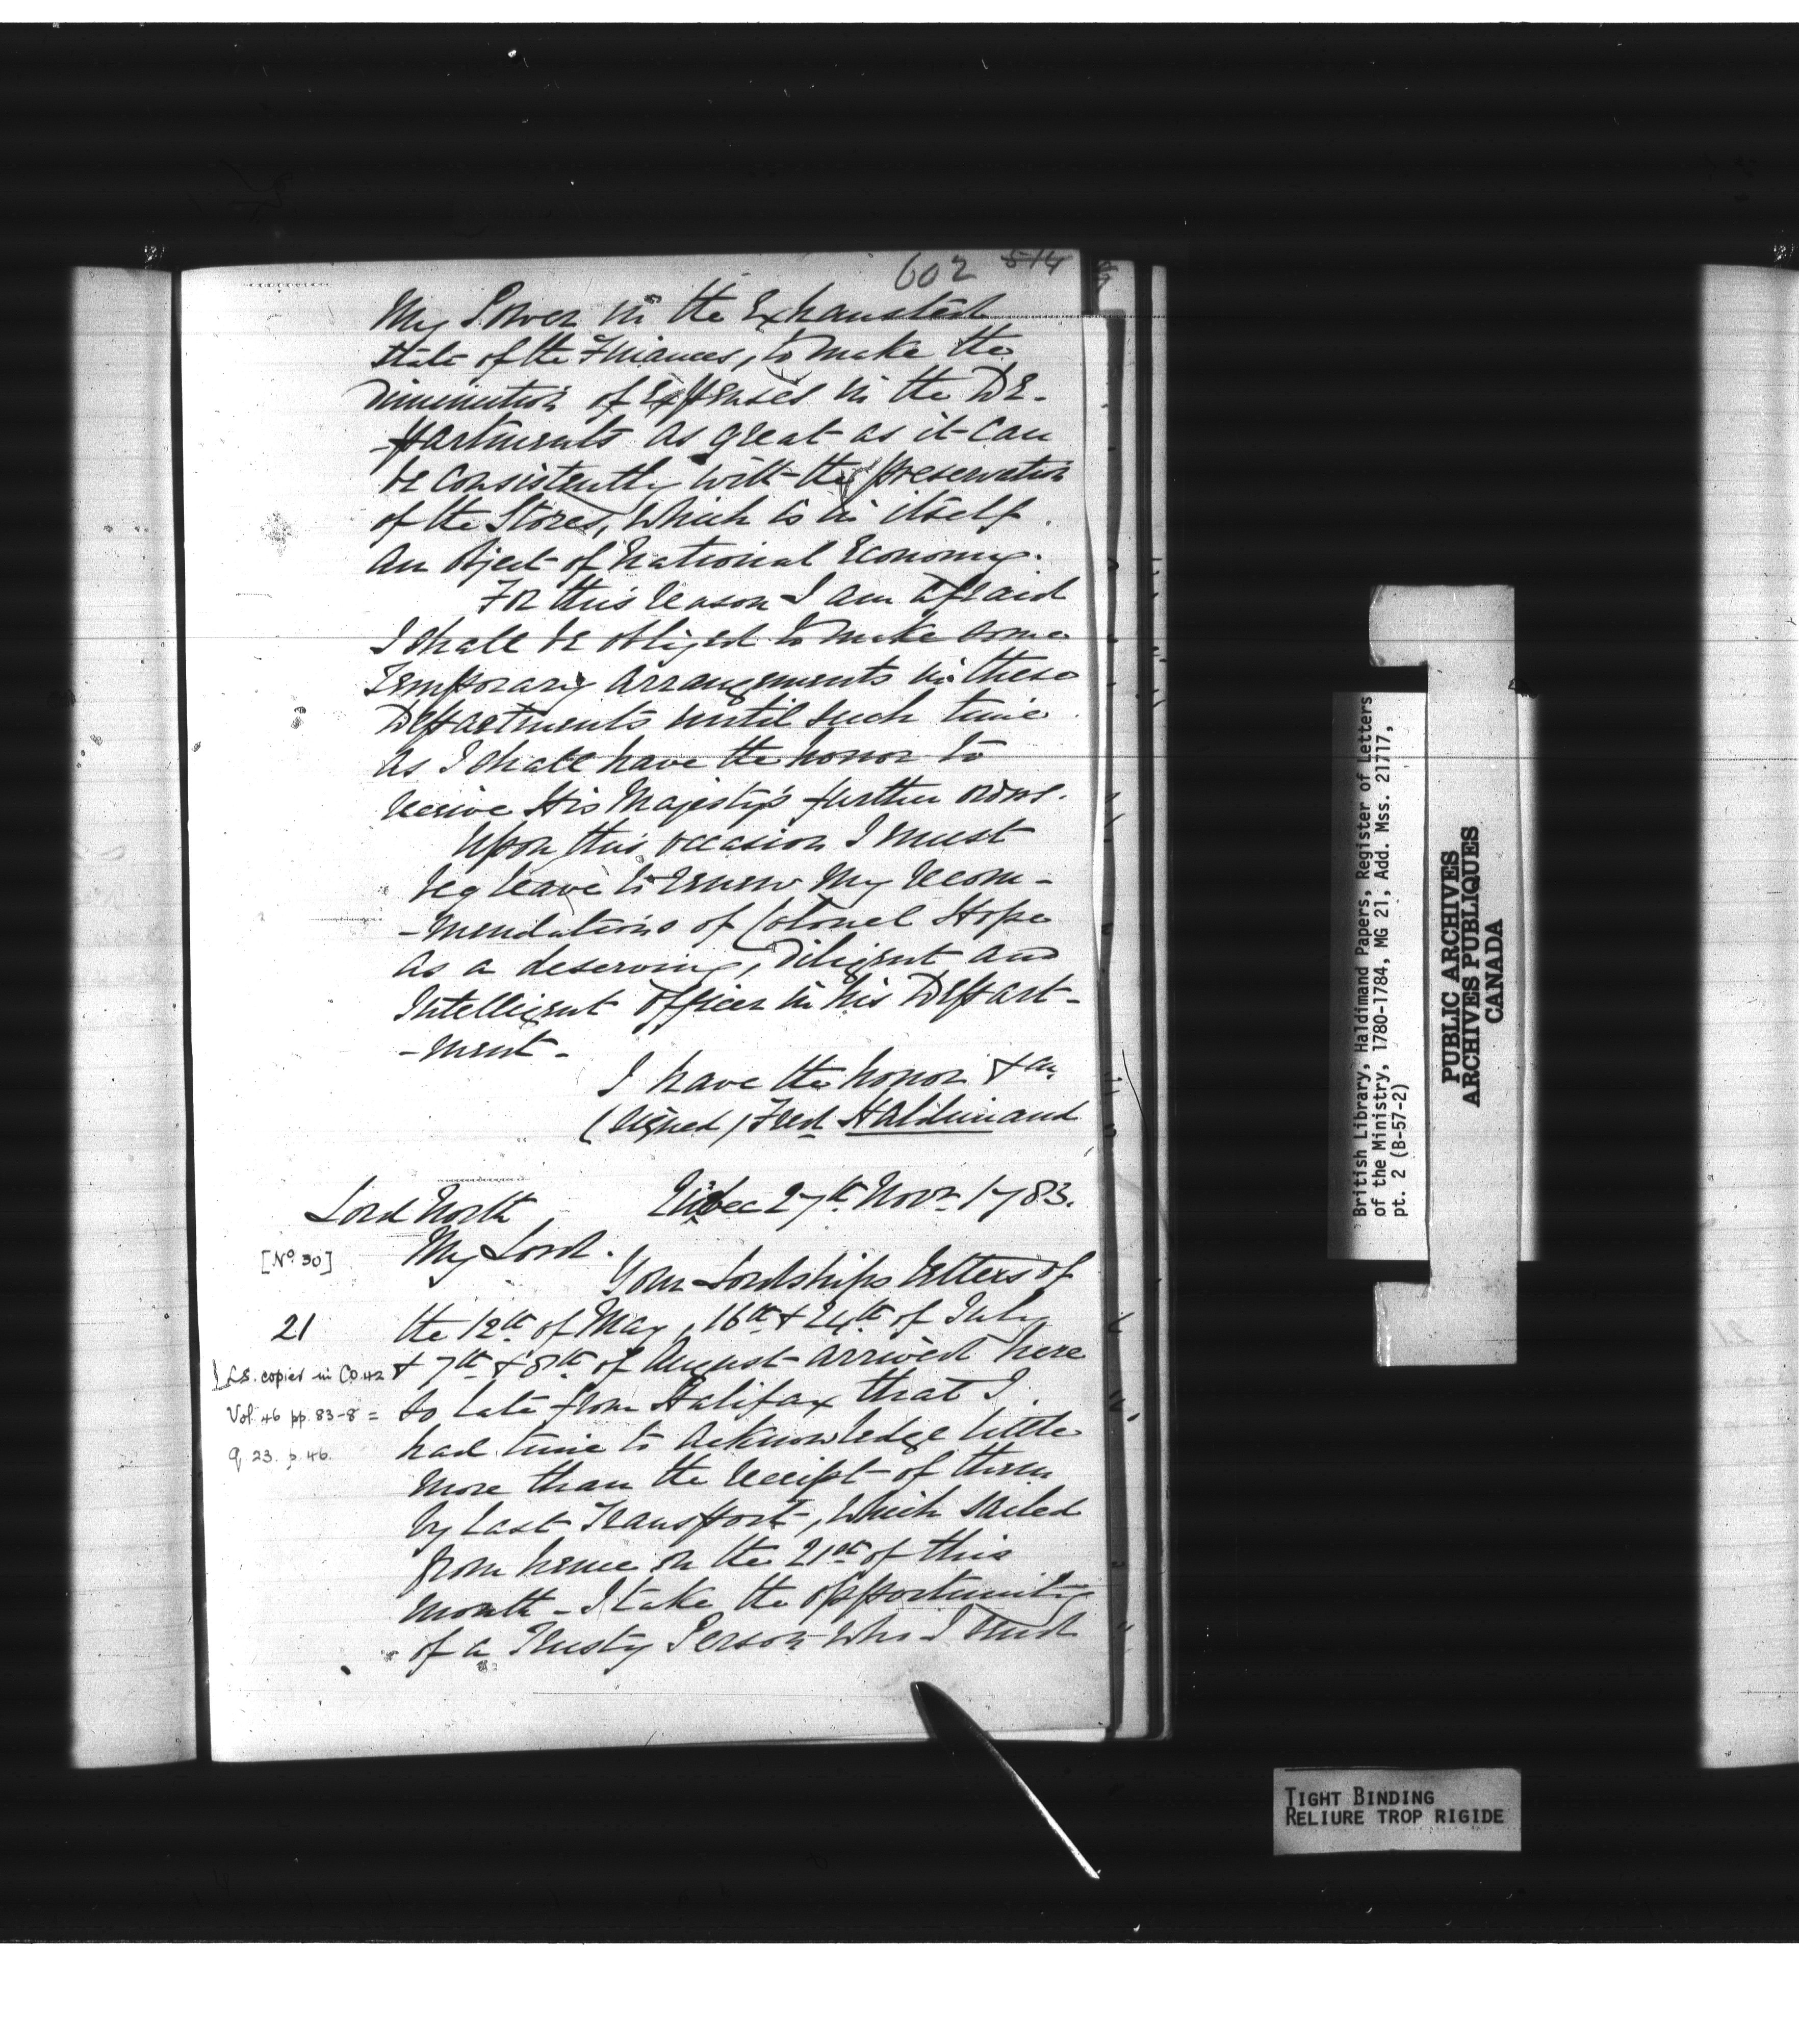 602 514
My Power in the Exhausted
State of the Finances, to make the
Diminution of Expenses in the De-
-partments as great as it can
be consistently with the preservation
of the Stores, which is in itself
an Object of National Economy.
For this reason I am afraid
I shall be obliged to make some
Temporary Arrangements in these
Departments until such time
as I shall have the honor to
receive His Majesty's further orders.
Upon this occasion I must
beg leave to renew my recom-
-mendations of Colonel Hope
as a deserving, Diligent and
Intelligent Officer in his Depart-
-ment-
I have the honor &ca
(signed) Fred Haldimand
Quebec 27th Novr 1783.
Lord North
My Lord.
[No. 30]
Your Lordships Letters of
21
the 12th of May, 16th & 24th of July
& 7th & 8th of August arrived here
so late from Halifax that I
had time to acknowledge little
more than the receipt of them
by last Transport, which sailed
from hence on the 21st of this
month - I take the opportunity
of a Trusty Person who I send
L.S. copies in C.O. 42
Vol. 46 pp. 83-8 =
Q 23. p. 46.
British Library, Haldimand Papers, Register of Letters
of the Ministry, 1780-1784, MG 21, Add. Mss. 21717,
pt. 2 (B-57-2)
PUBLIC ARCHIVES
ARCHIVES PUBLIQUES
CANADA
TIGHT BINDING
RELIURE TROP RIGIDE